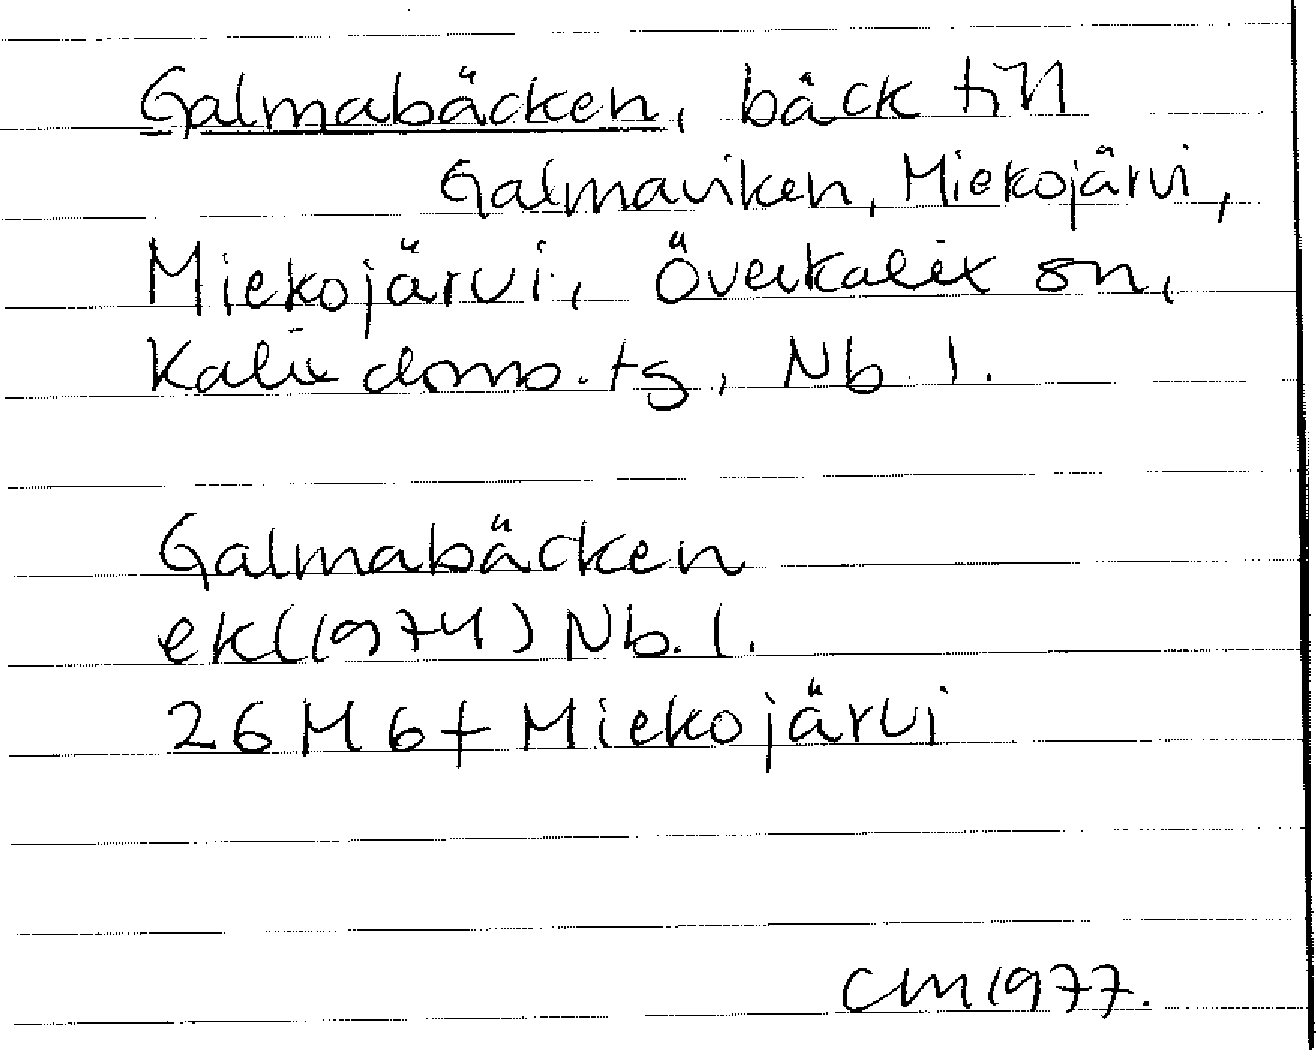 Galmabäcken, bäck till
Galmaviken, Miekojärvi,
Miekojärvi, Överkalix sn,
Kalix doms. tg, Nb l.
Galmabäcken
ek (1974) Nb. l.
26 M 6f Miekojärvi
CM 1977.